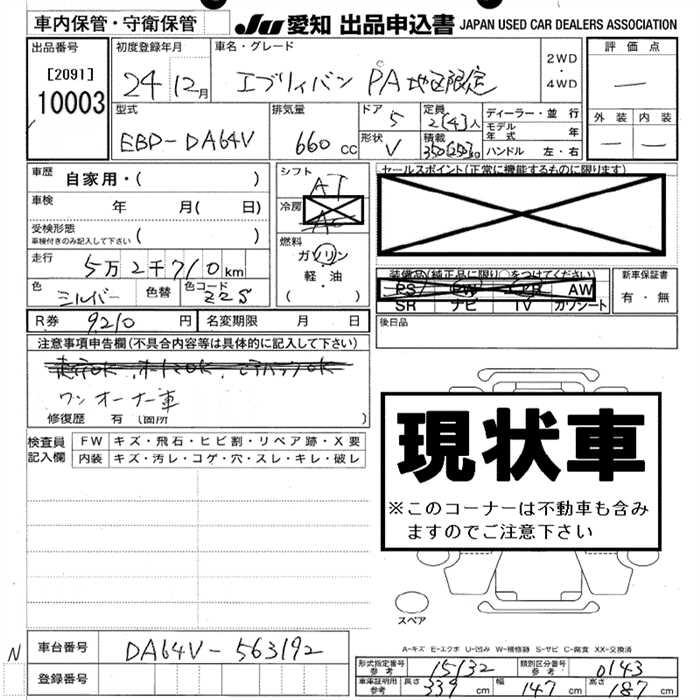 車内保管・守衛保管
JU 愛知 出品申込書 JAPAN USED CAR DEALERS ASSOCIATION
出品番号 初度登録年月 車名・グレード 評価点
[2091]
10003
24年 12月 エブリィバン PA地区限定 2WD・4WD —
型式 排気量 ドア 5 定員 2(4)人 ディーラー・並行 外装 内装
EBD-DA64V 660cc 形状 V 積載 350(250)kg モデル年式 年 — —
ハンドル 左・右
車歴 自家用・( ) シフト AT セールスポイント(正常に機能するものに限ります)
車検 年 月( 日) 冷房 AC
受検形態 ( )
車検付きのみ記入して下さい
燃料 ガソリン
軽・油
( )
走行 5万2千710km
装備品(純正品に限り○をつけてください) 新車保証書
色 シルバー 色替 色コード Z2S PS PW エアB AW 有・無
SR ナビ TV カワシート
R券 9210円 名変期限 月 日 後日品
注意事項申告欄(不具合内容等は具体的に記入して下さい)
ワンオーナー車
修復歴 有(箇所 )
現状車
※このコーナーは不動車も含み
ますのでご注意下さい
検査員 FW キズ・飛石・ヒビ割・リペア跡・X要
記入欄 内装 キズ・汚レ・コゲ・穴・スレ・キレ・破レ
スペア
A-キズ E-エクボ U-凹み W-補修跡 S-サビ C-腐食 XX-交換済
N 車台番号 DA64V-563192
登録番号
形式指定番号 参考 15132 類別区分番号 参考 0143
車庫証明用 参考 長さ 339cm 幅 147cm 高さ 187cm